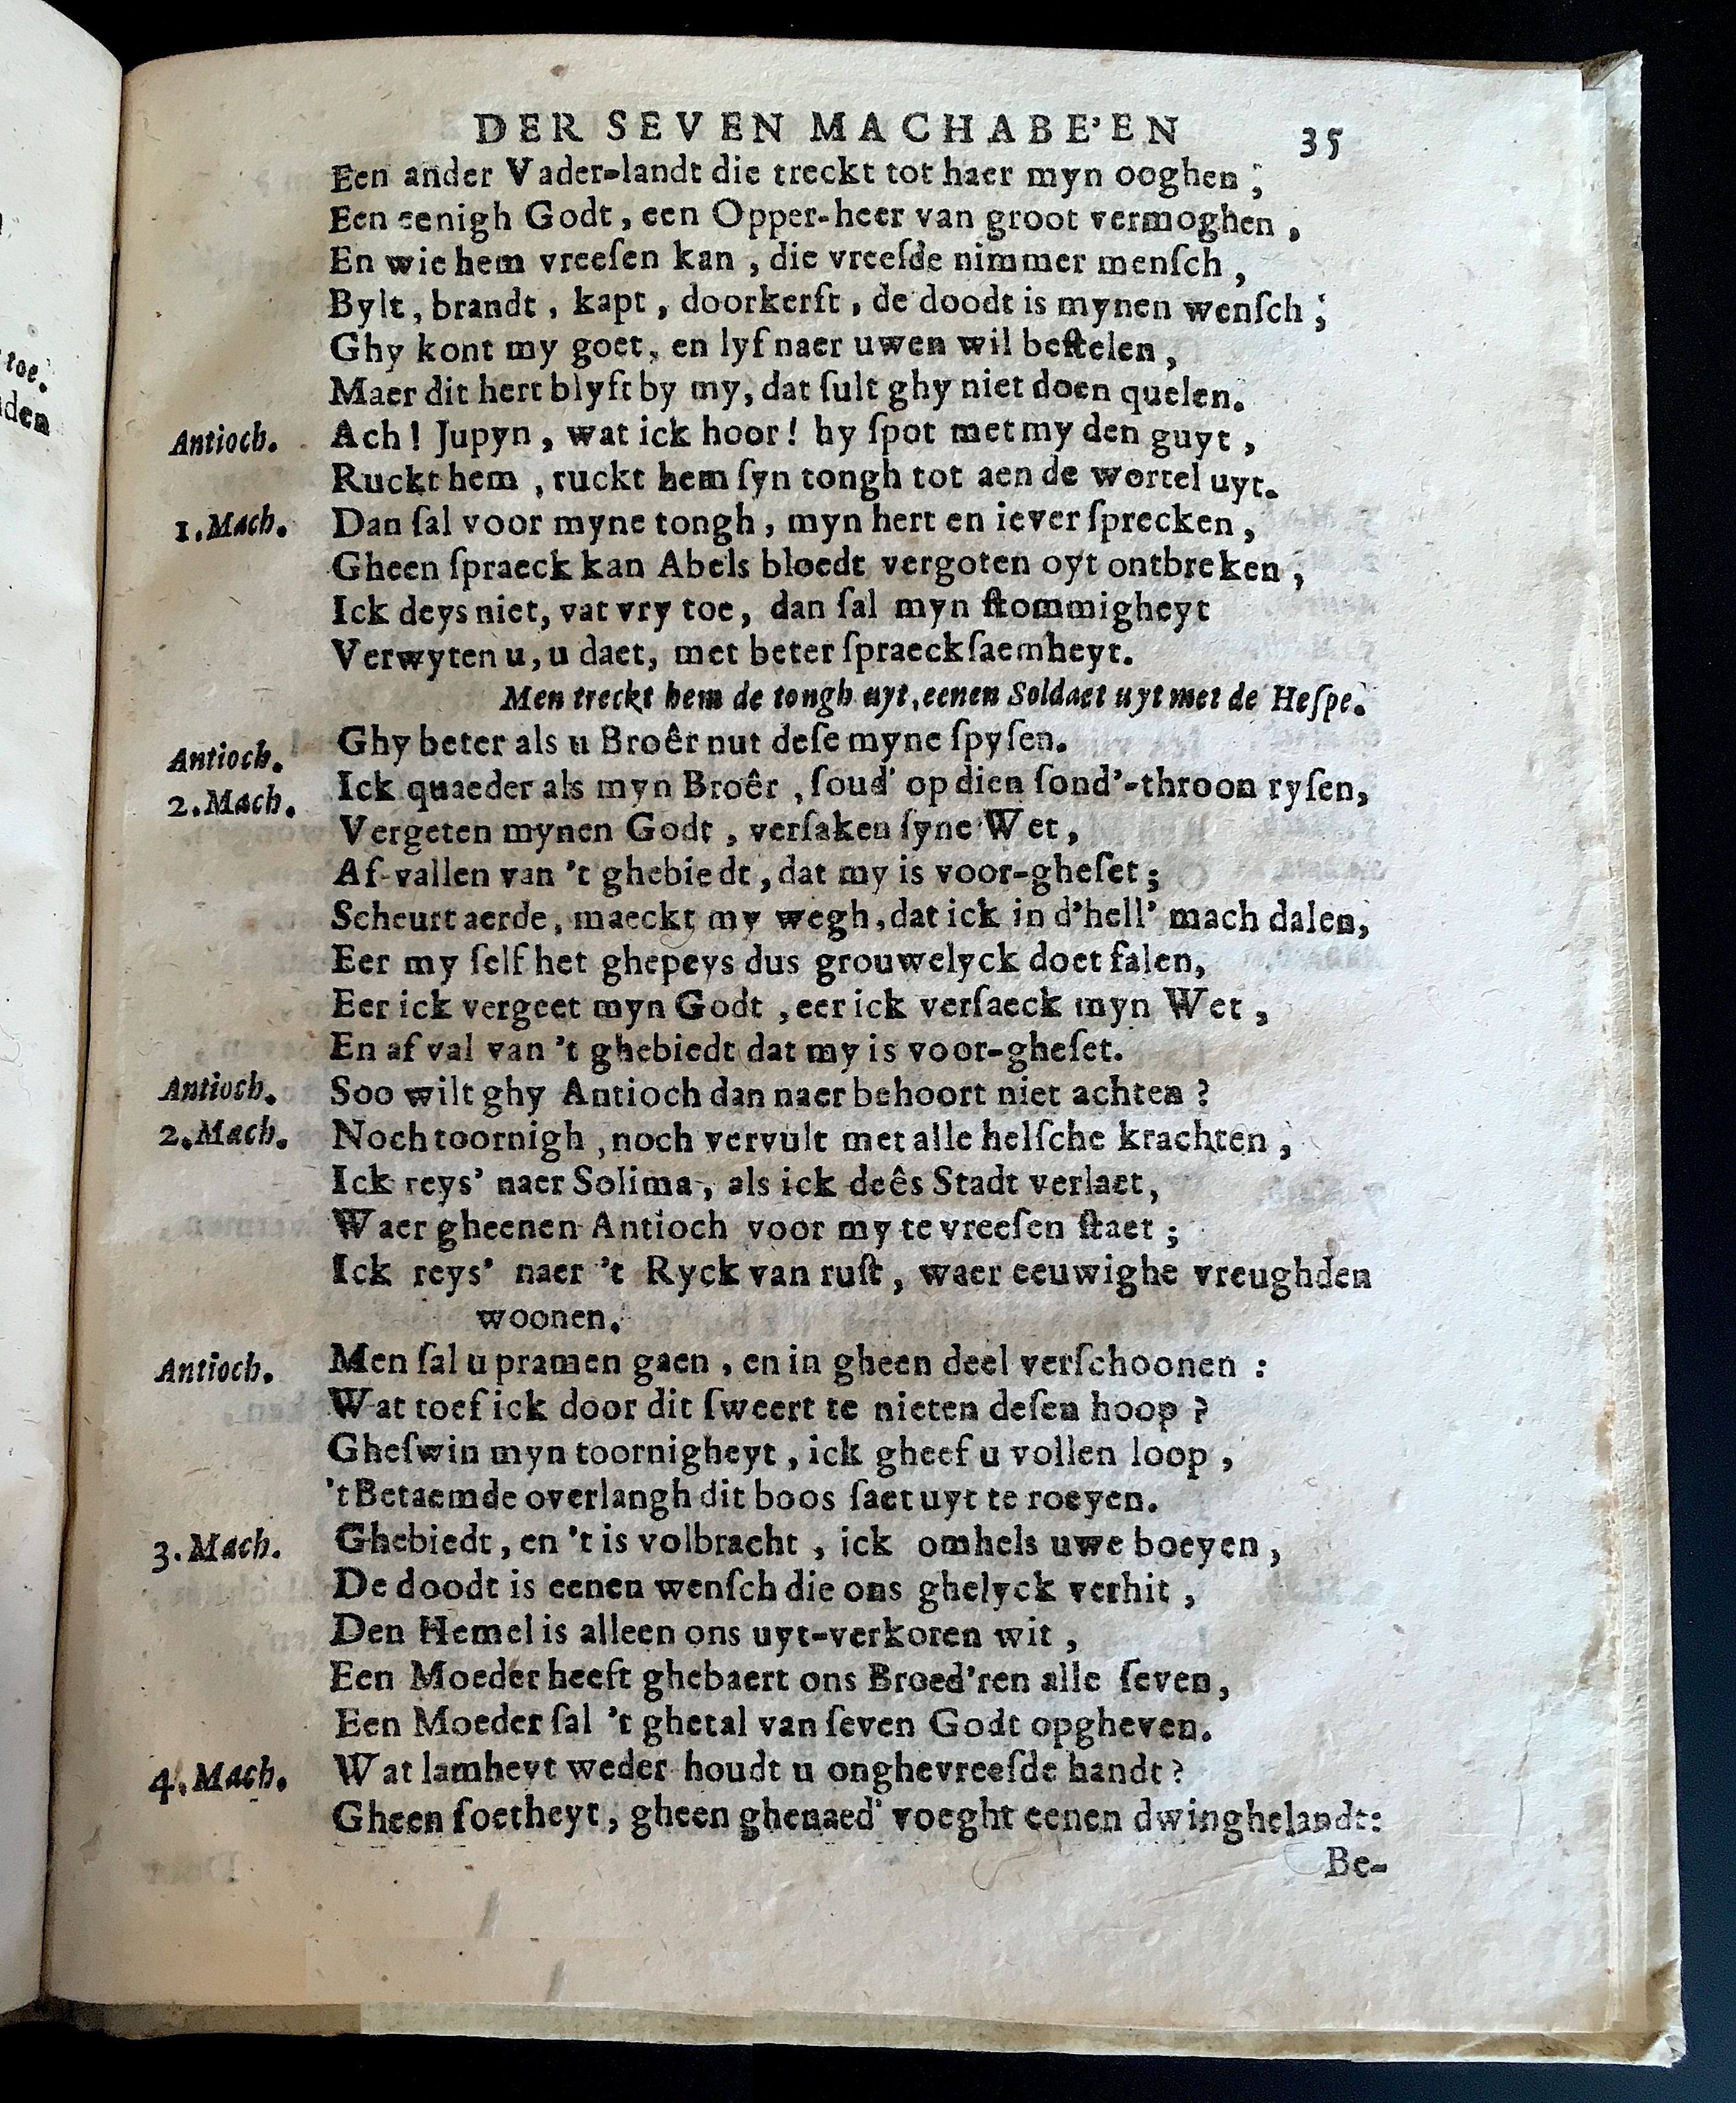 DER SEVEN MACHABE'EN 35
Een ander Vader-landt die treckt tot haer myn ooghen ;
Een eenigh Godt, een Opper-heer van groot vermoghen ,
En wie hem vreeſen kan , die vreeſde nimmer menſch ,
Bylt, brandt , kapt , doorkerft , de doodt is mynen wenſch ;
Ghy kont my goet, en lyf naer uwen wil beſtelen ,
Maer dit hert blyft by my, dat ſult ghy niet doen quelen.
Antioch. Ach! Jupyn , wat ick hoor! hy ſpot met my den guyt ,
Ruckt hem , ruckt hem ſyn tongh tot aen de wortel uyt.
1. Mach. Dan ſal voor myne tongh , myn hert en iever ſprecken ,
Gheen ſpraeck kan Abels bloedt vergoten oyt ontbreken ;
Ick deys niet, vat vry toe, dan ſal myn ſtommigheyt
Verwyten u, u daet, met beter ſpraeckſaemheyt.
Men treckt hem de tongh uyt, eenen Soldaet uyt met de Heſpe.
Antioch. Ghy beter als u Broêr nut deſe myne ſpyſen.
2. Mach. Ick quaeder als myn Broêr , ſoud' op dien ſond'-throon ryſen,
Vergeten mynen Godt , verſaken ſyne Wet ,
Af-vallen van 't ghebiedt , dat my is voor-gheſet ;
Scheurt aerde, maeckt my wegh, dat ick in d'hell' mach dalen,
Eer my ſelf het ghepeys dus grouwelyck doet falen,
Eer ick vergeet myn Godt , eer ick verſaeck myn Wet ,
En af val van 't ghebiedt dat my is voor-gheſet.
Antioch. Soo wilt ghy Antioch dan naer behoort niet achten ?
2. Mach. Noch toornigh , noch vervult met alle helſche krachten ,
Ick reys' naer Solima , als ick deês Stadt verlaet,
Waer gheenen Antioch voor my te vreeſen ſtaet ;
Ick reys' naer 't Ryck van ruſt , waer eeuwighe vreughden
woonen.
Antioch. Men ſal u pramen gaen , en in gheen deel verſchoonen :
Wat toef ick door dit ſweert te nieten deſen hoop ?
Gheſwin myn toornigheyt , ick gheef u vollen loop ,
't Betaemde overlangh dit boos ſaet uyt te roeyen.
3. Mach. Ghebiedt , en 't is volbracht , ick omhels uwe boeyen ,
De doodt is eenen wenſch die ons ghelyck verhit ,
Den Hemel is alleen ons uyt-verkoren wit ,
Een Moeder heeft ghebaert ons Broed'ren alle ſeven,
Een Moeder ſal 't ghetal van ſeven Godt opgheven.
4. Mach. Wat lamheyt weder houdt u onghevreeſde handt ?
Gheen ſoetheyt, gheen ghenaed' voeght eenen dwinghelandt:
Be-
toe.